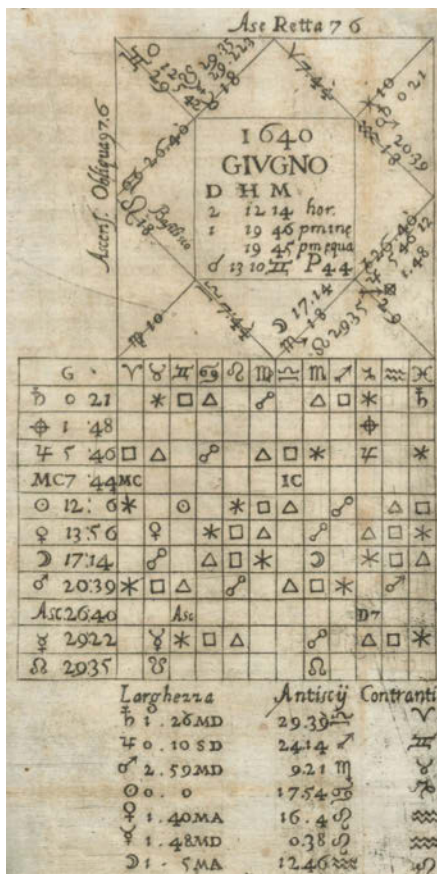 Asc Retta 7 6
Ascens. Obliqua 97.6
♈ 7.44
♓ 10
♄ 0 21
♒ 18
♂ 20 39
♋ 26.40
♌ 18
♍ 10
♎ 7.44
☽ 17.14
♏ 18
☊ 29 35
♃ 5.46
1.48
1640
GIVGNO
D H M
2 12 14 hor.
1 19 46 pm ine
19 45 pm equa
☌ 13 10 ♊ P 44
G ♈ ♉ ♊ ♋ ♌ ♍ ♎ ♏ ♐ ♑ ♒ ♓
♄ 0 21 ✶ □ △ ☍ △ □ ✶ ♄
⊕ 1 48 ⊕
♃ 5 46 □ △ ☍ △ □ ✶ ♃ ✶
MC 7 44 MC IC
☉ 12: 6 ✶ ☉ ✶ □ △ ☍ △ □
♀ 13:56 ♀ ✶ □ △ ☍ △ □ ✶
☽ 17:14 ☍ △ □ ✶ ☽ ✶ □ △
♂ 20:39 ✶ □ △ ☍ △ □ ✶ ♂
Asc 26:40 Asc D7
☿ 29 22 ☿ ✶ □ △ ☍ △ □ ✶
☊ 29 35 ☋ ☊
Larghezza Antiscij Contranti
♄ 1. 26 MD 29.39 ♎ ♈
♃ 0. 10 SD 24.14 ♐ ♊
♂ 2. 59 MD 9.21 ♏ ♉
☉ 0. 0 17.54 ♋ ♑
♀ 1. 40 MA 16. 4 ♌ ♒
☿ 1. 48 MD 0.38 ♌ ♒
☽ 1. 5 MA 12.46 ♒ ♌